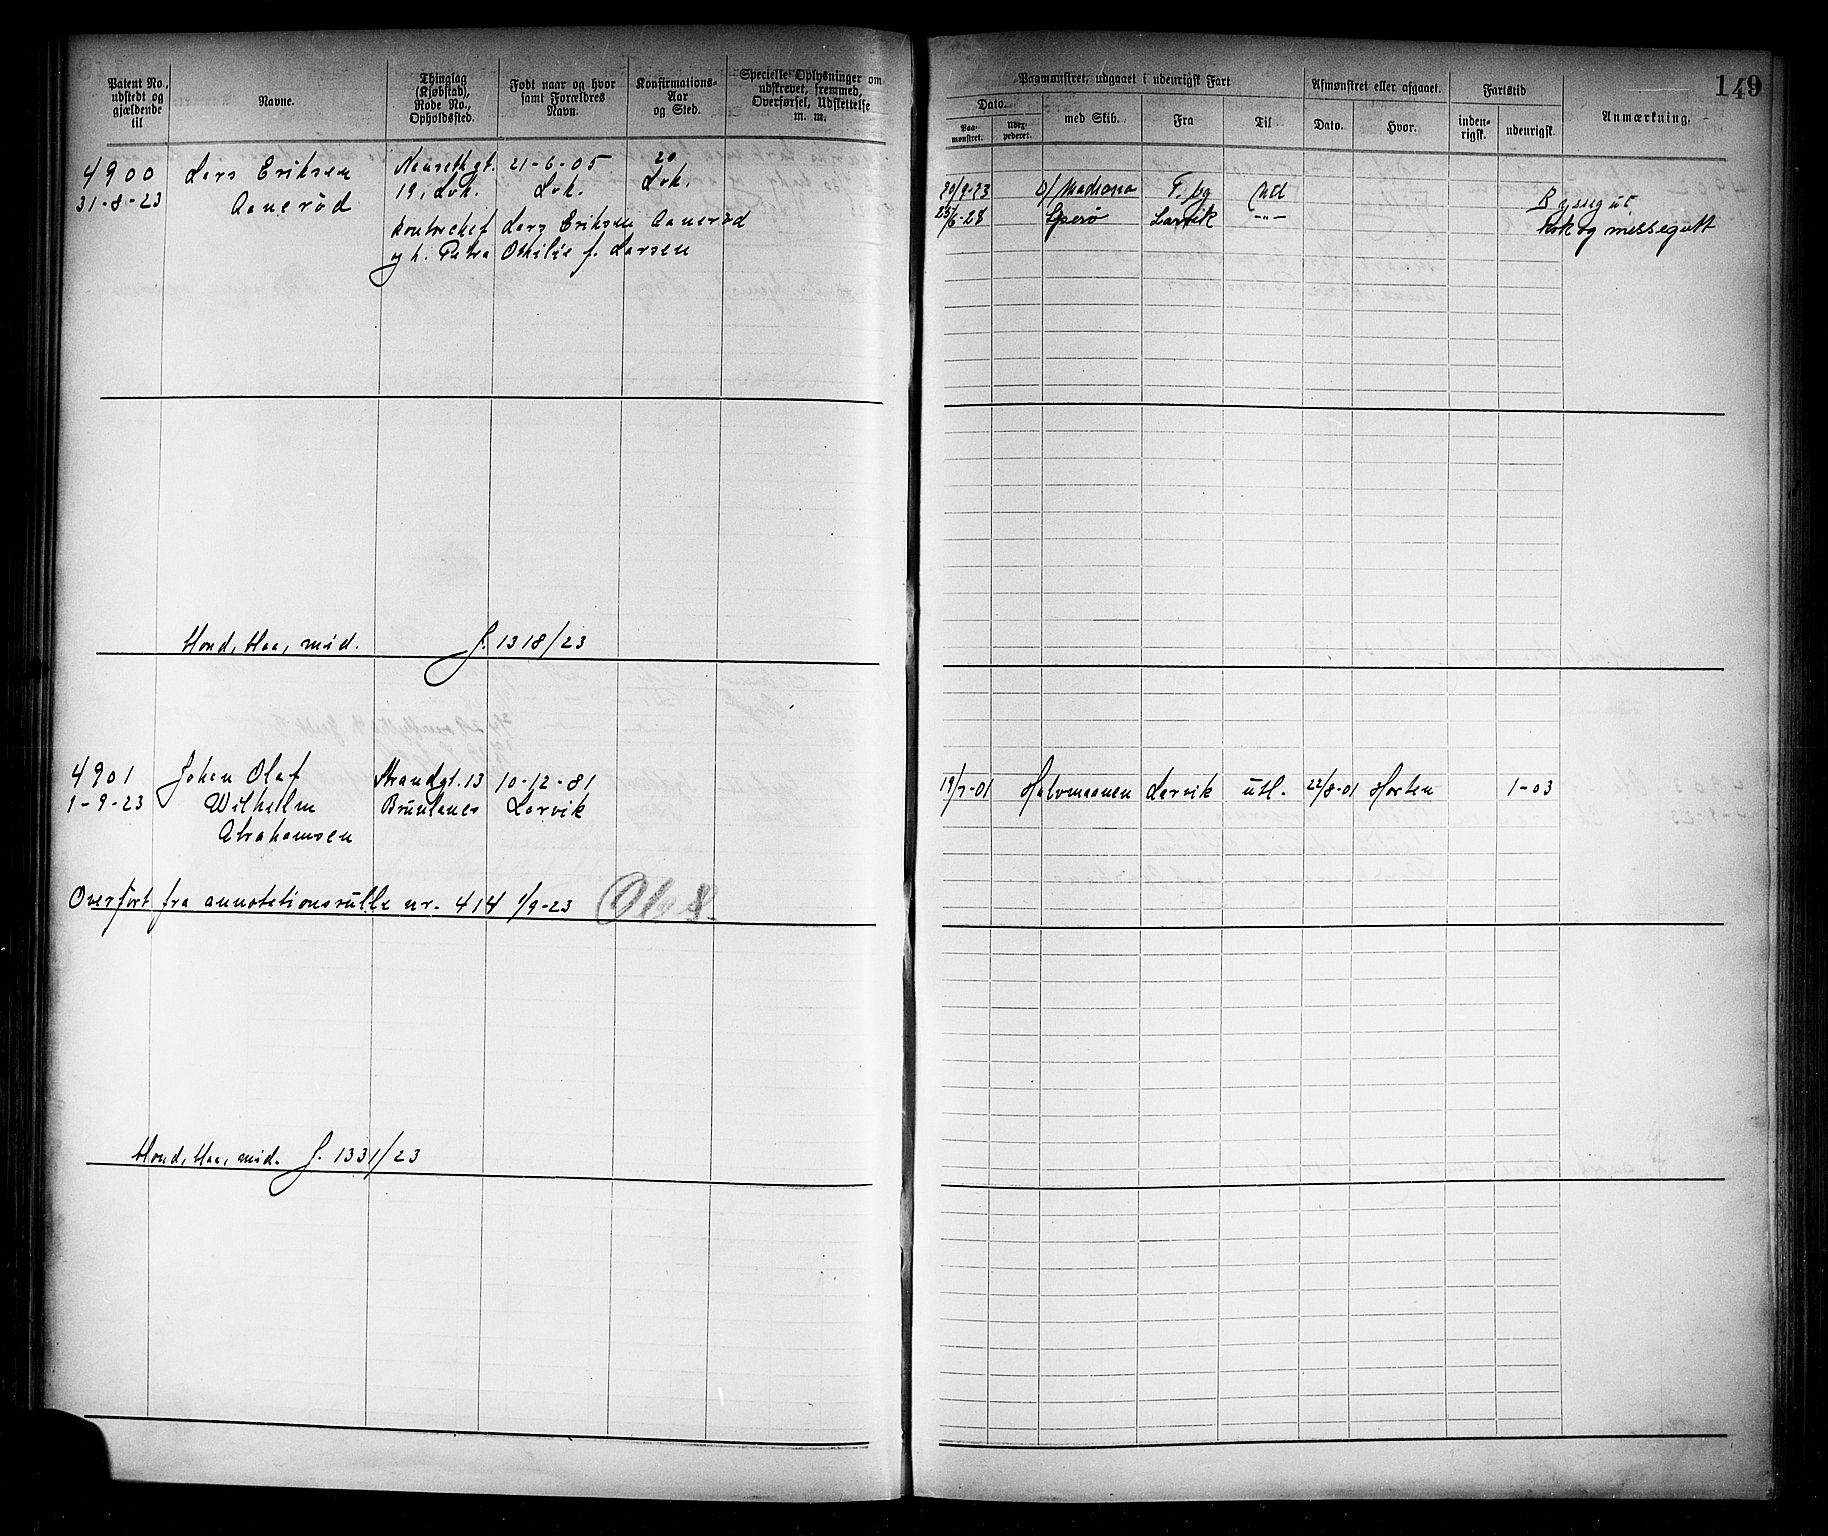 149
Patent No., udstedt og gjældende til
Navne.
Thinglag (Kjøbstad), Rode No., Opholdssted.
Født naar og hvor samt Forældres Navn.
Konfirmations-Aar og Sted.
Specielle Oplysninger om udskrevet, fremmed, Overførsel, Udslettelse m. m.
Paamønstret, udgaaet i udenrigsk Fart
Dato.
Paa-mønstret.
Udex-pederet.
med Skib.
Fra
Til
Afmønstret eller afgaaet.
Dato.
Hvor.
Fartstid
inden-rigsk.
udenrigsk
Anmærkning.
4900 Lars Eriksen Nansethgt. 21-6-05 20
31-8-23 Aanerød 19, Lvk. Lvk. Lvk.
Kontorchef Lars Eriksen Aanerød
og h. Petra Othilie f. Larsen
20/9-23 D/ Madrono T.bg Utl Byssegut
23/6-28 Sperø Larvik -"- Kok og messegutt
Hond, Haa, mid. J. 1318/23
4901 Johan Olaf Strandgt. 13 10-12-81
1-9-23 Wilhelm Brunlanes Larvik
Abrahamsen
19/7-01 Halvmaanen Larvik utl. 22/8-01 Horten 1-03
Overført fra annotationsrulle nr. 414 1/9-23
Hond, Haa, mid. J. 1331/23